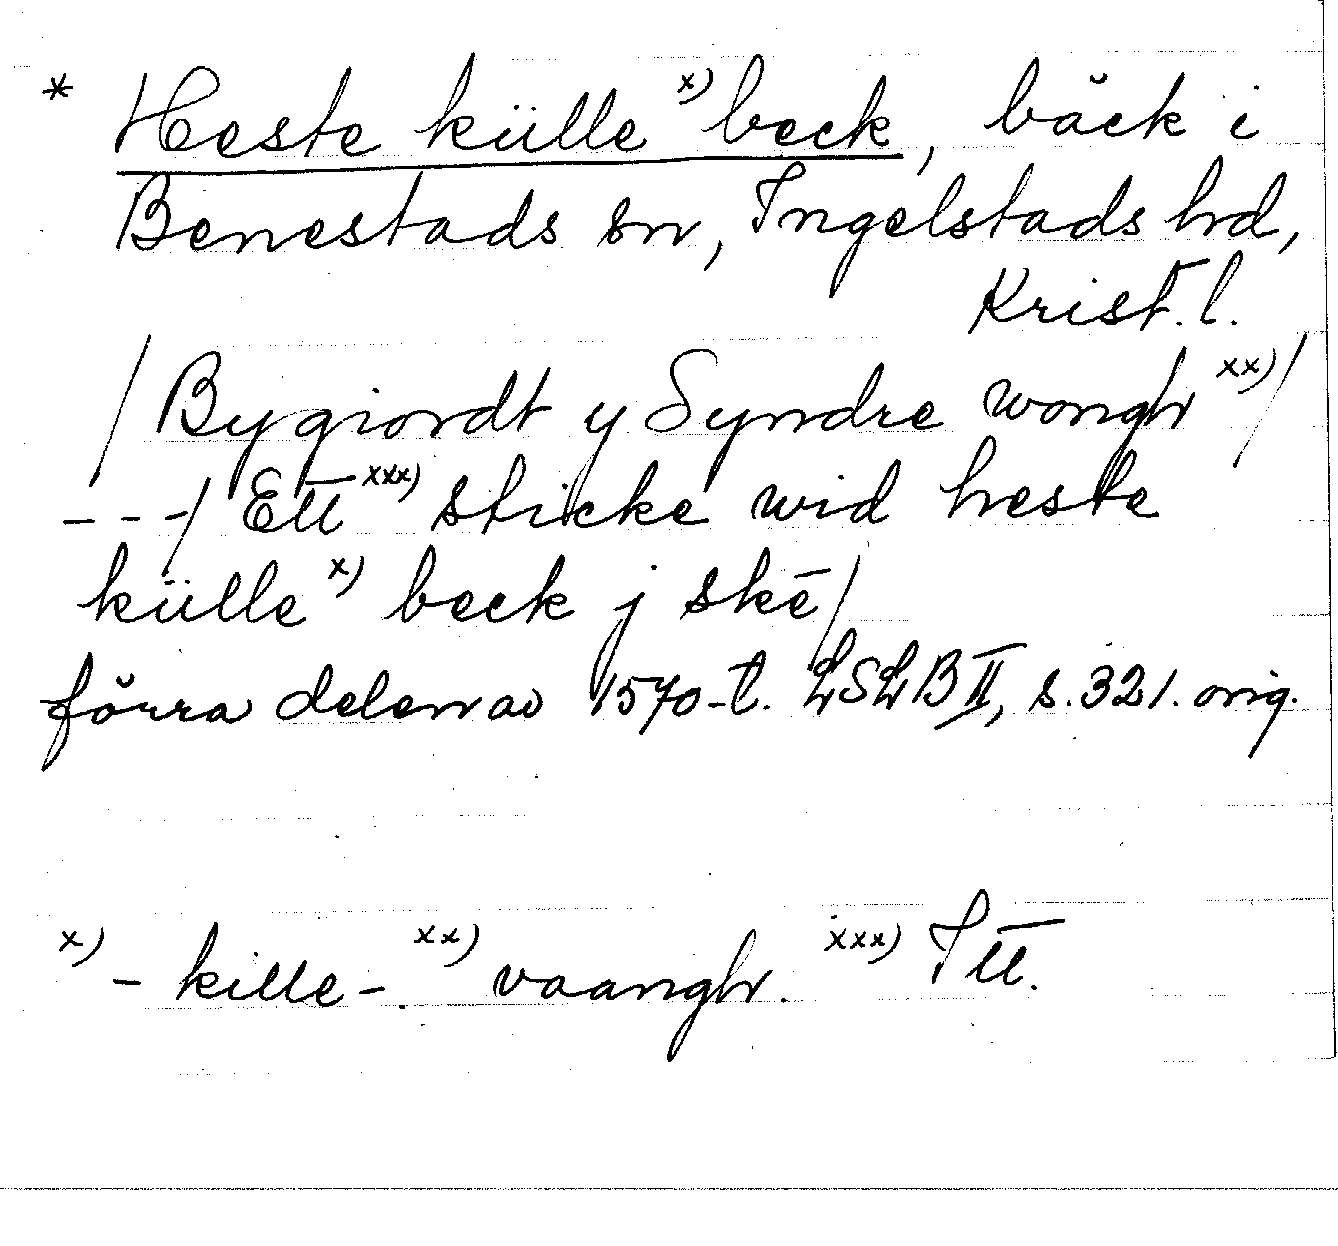 * Heste külle x) beck, bäck i
Benestads sn, Ingelstads hd,
Krist. l.
/Bygiordt y Syndre wongh xx)/
---/ Ett xxx) sticke wid heste
külle x) beck j skē/
förra delen av 1570-t. LSLB II, s. 321. orig.
x) -kille-. xx) vaangh. xxx) Itt.